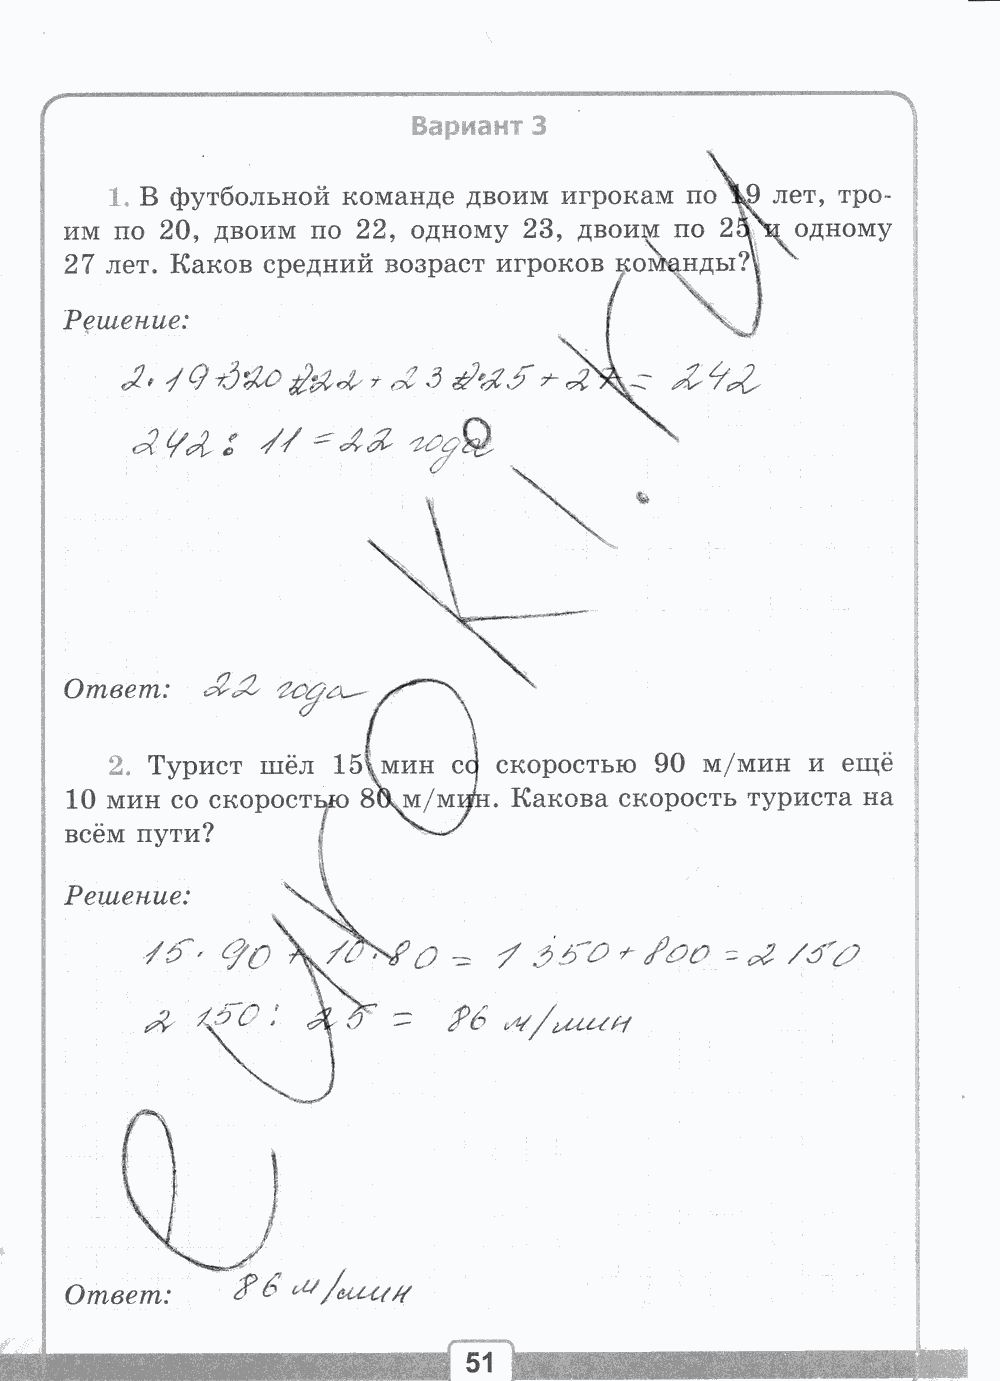 Вариант 3
1. В футбольной команде двоим игрокам по 19 лет, тро-
им по 20, двоим по 22, одному 23, двоим по 25 и одному
27 лет. Каков средний возраст игроков команды?
Решение:
2·19+3·20+2·22+23+2·25+27=242
242:11=22 года
Ответ: 22 года
2. Турист шёл 15 мин со скоростью 90 м/мин и ещё
10 мин со скоростью 80 м/мин. Какова скорость туриста на
всём пути?
Решение:
15·90+10·80=1350+800=2150
2150:25=86 м/мин
Ответ: 86 м/мин
51
euroki.ru